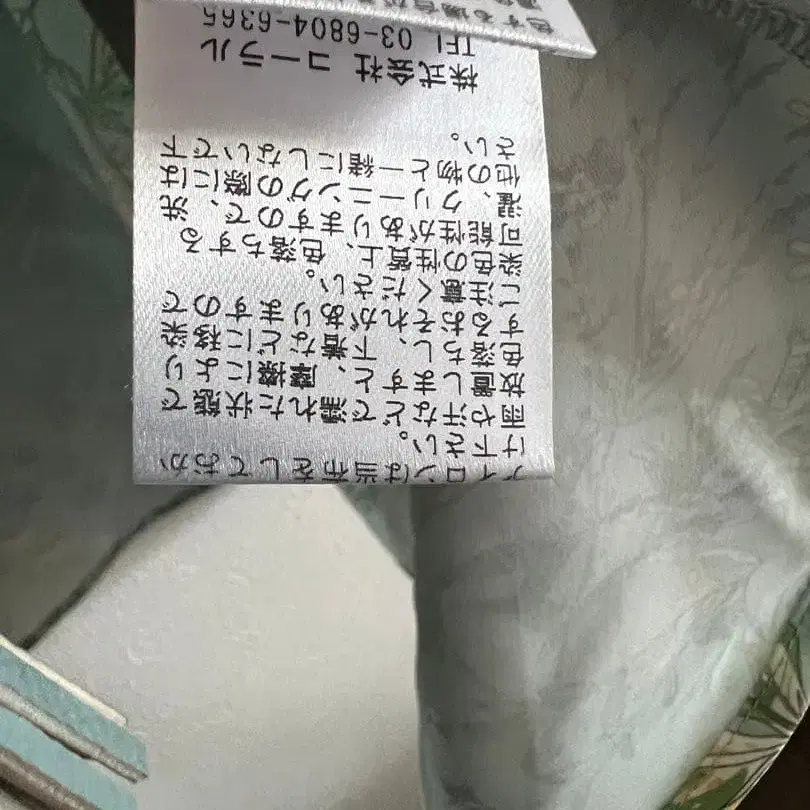 アイロンは当布をしておか
け下さい。
雨や汗などで濡れた状態で
放置しますと、摩擦により
色落ちし、下着などに移染
するおそれがありますので
ご注意ください。
染色の性質上、色落ちする
可能性がありますので、洗
濯、クリーニングの際には
他の物と一緒にしないで下
さい。
株式会社 コーラル
TEL 03-6804-6365
色する場合が